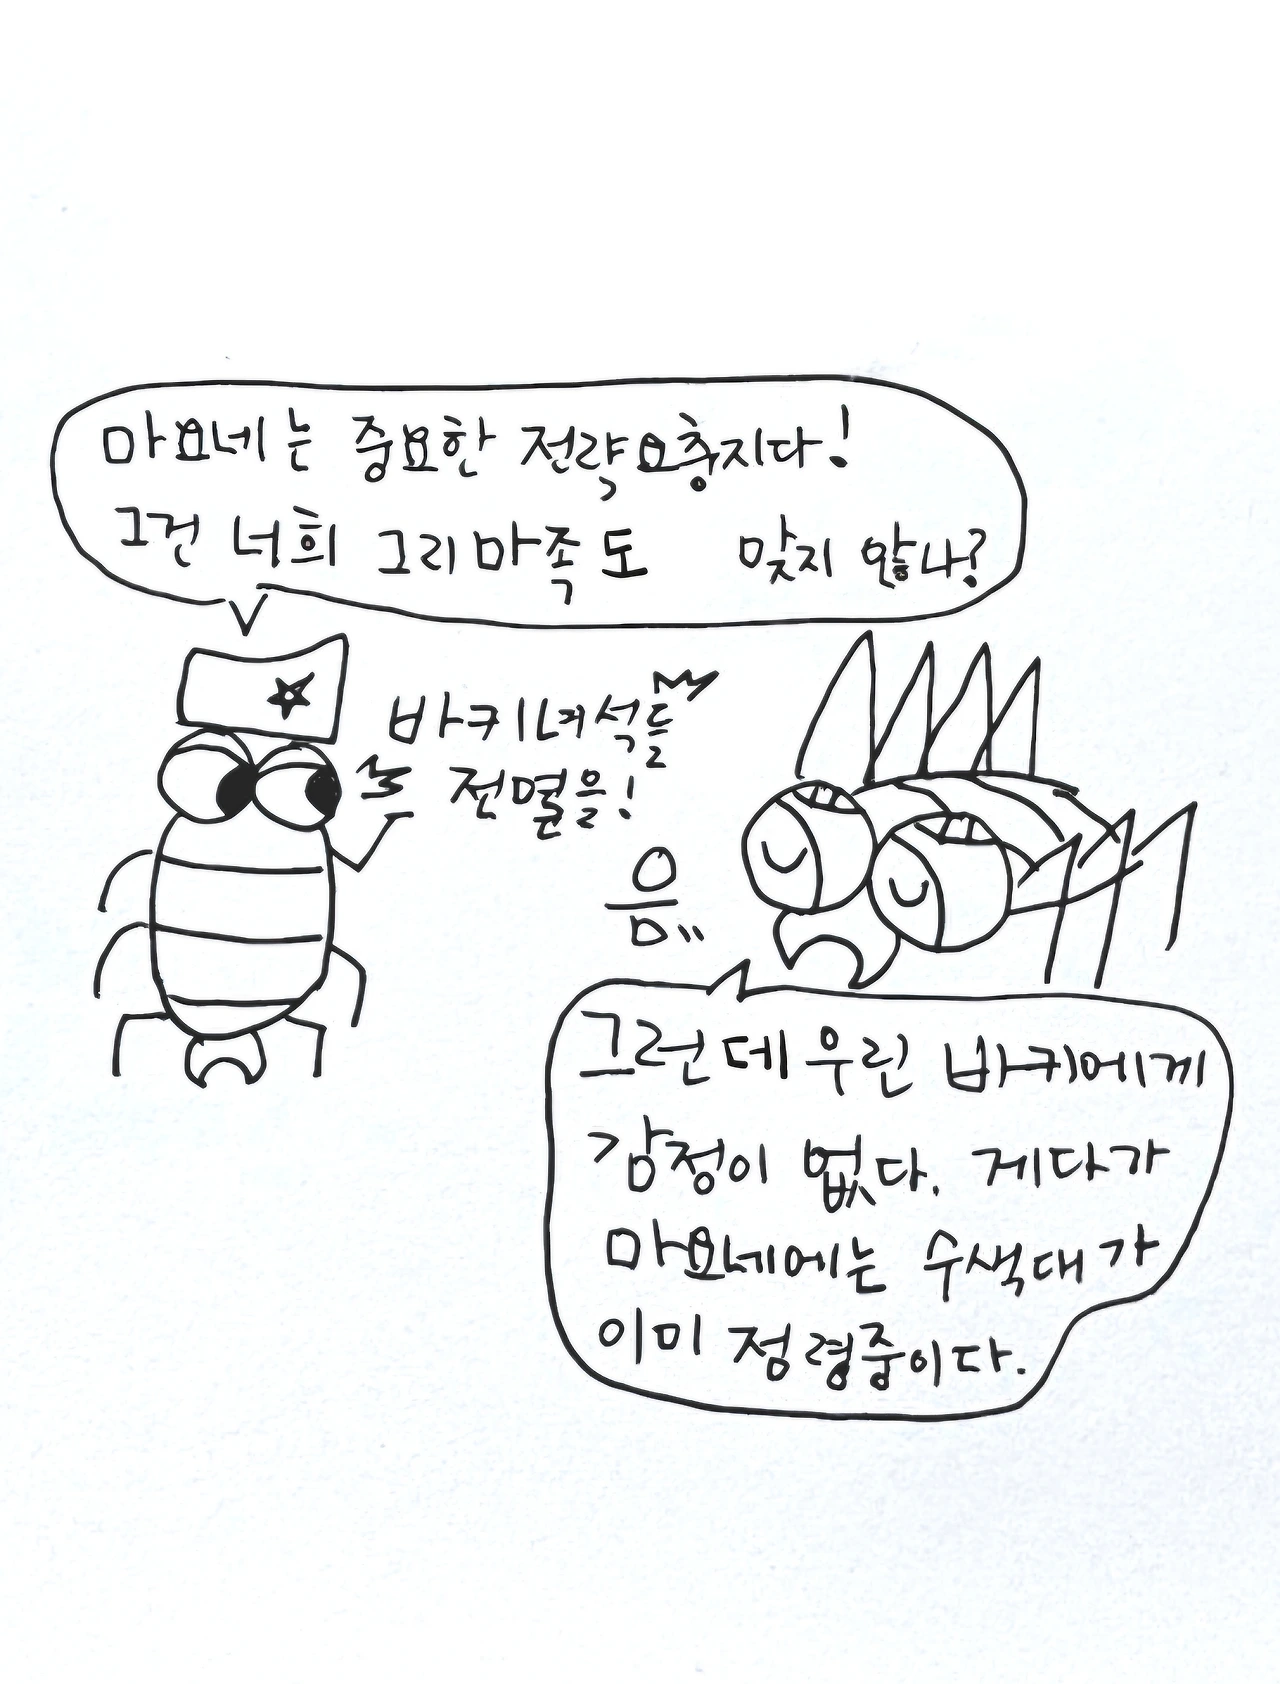 마요네는 중요한 전략요충지다!
그건 너희 그리마족도 맞지 않나?
바키녀석들
전멸을!
음..
그런데 우린 바키에게
감정이 없다. 게다가
마요네에는 수색대가
이미 점령중이다.